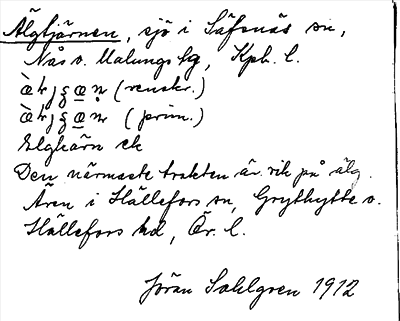 Älgtjärnen, sjö i Säfsnäs sn,
Nås o. Malungs hg, Kpb. l.
(renskr.)
(prim.)
Elgkärn ek
Den närmaste trakten är rik på älg.
Även i Hällefors sn, Grythytte o.
Hällefors hd, Ör. l.
Jöran Sahlgren 1912